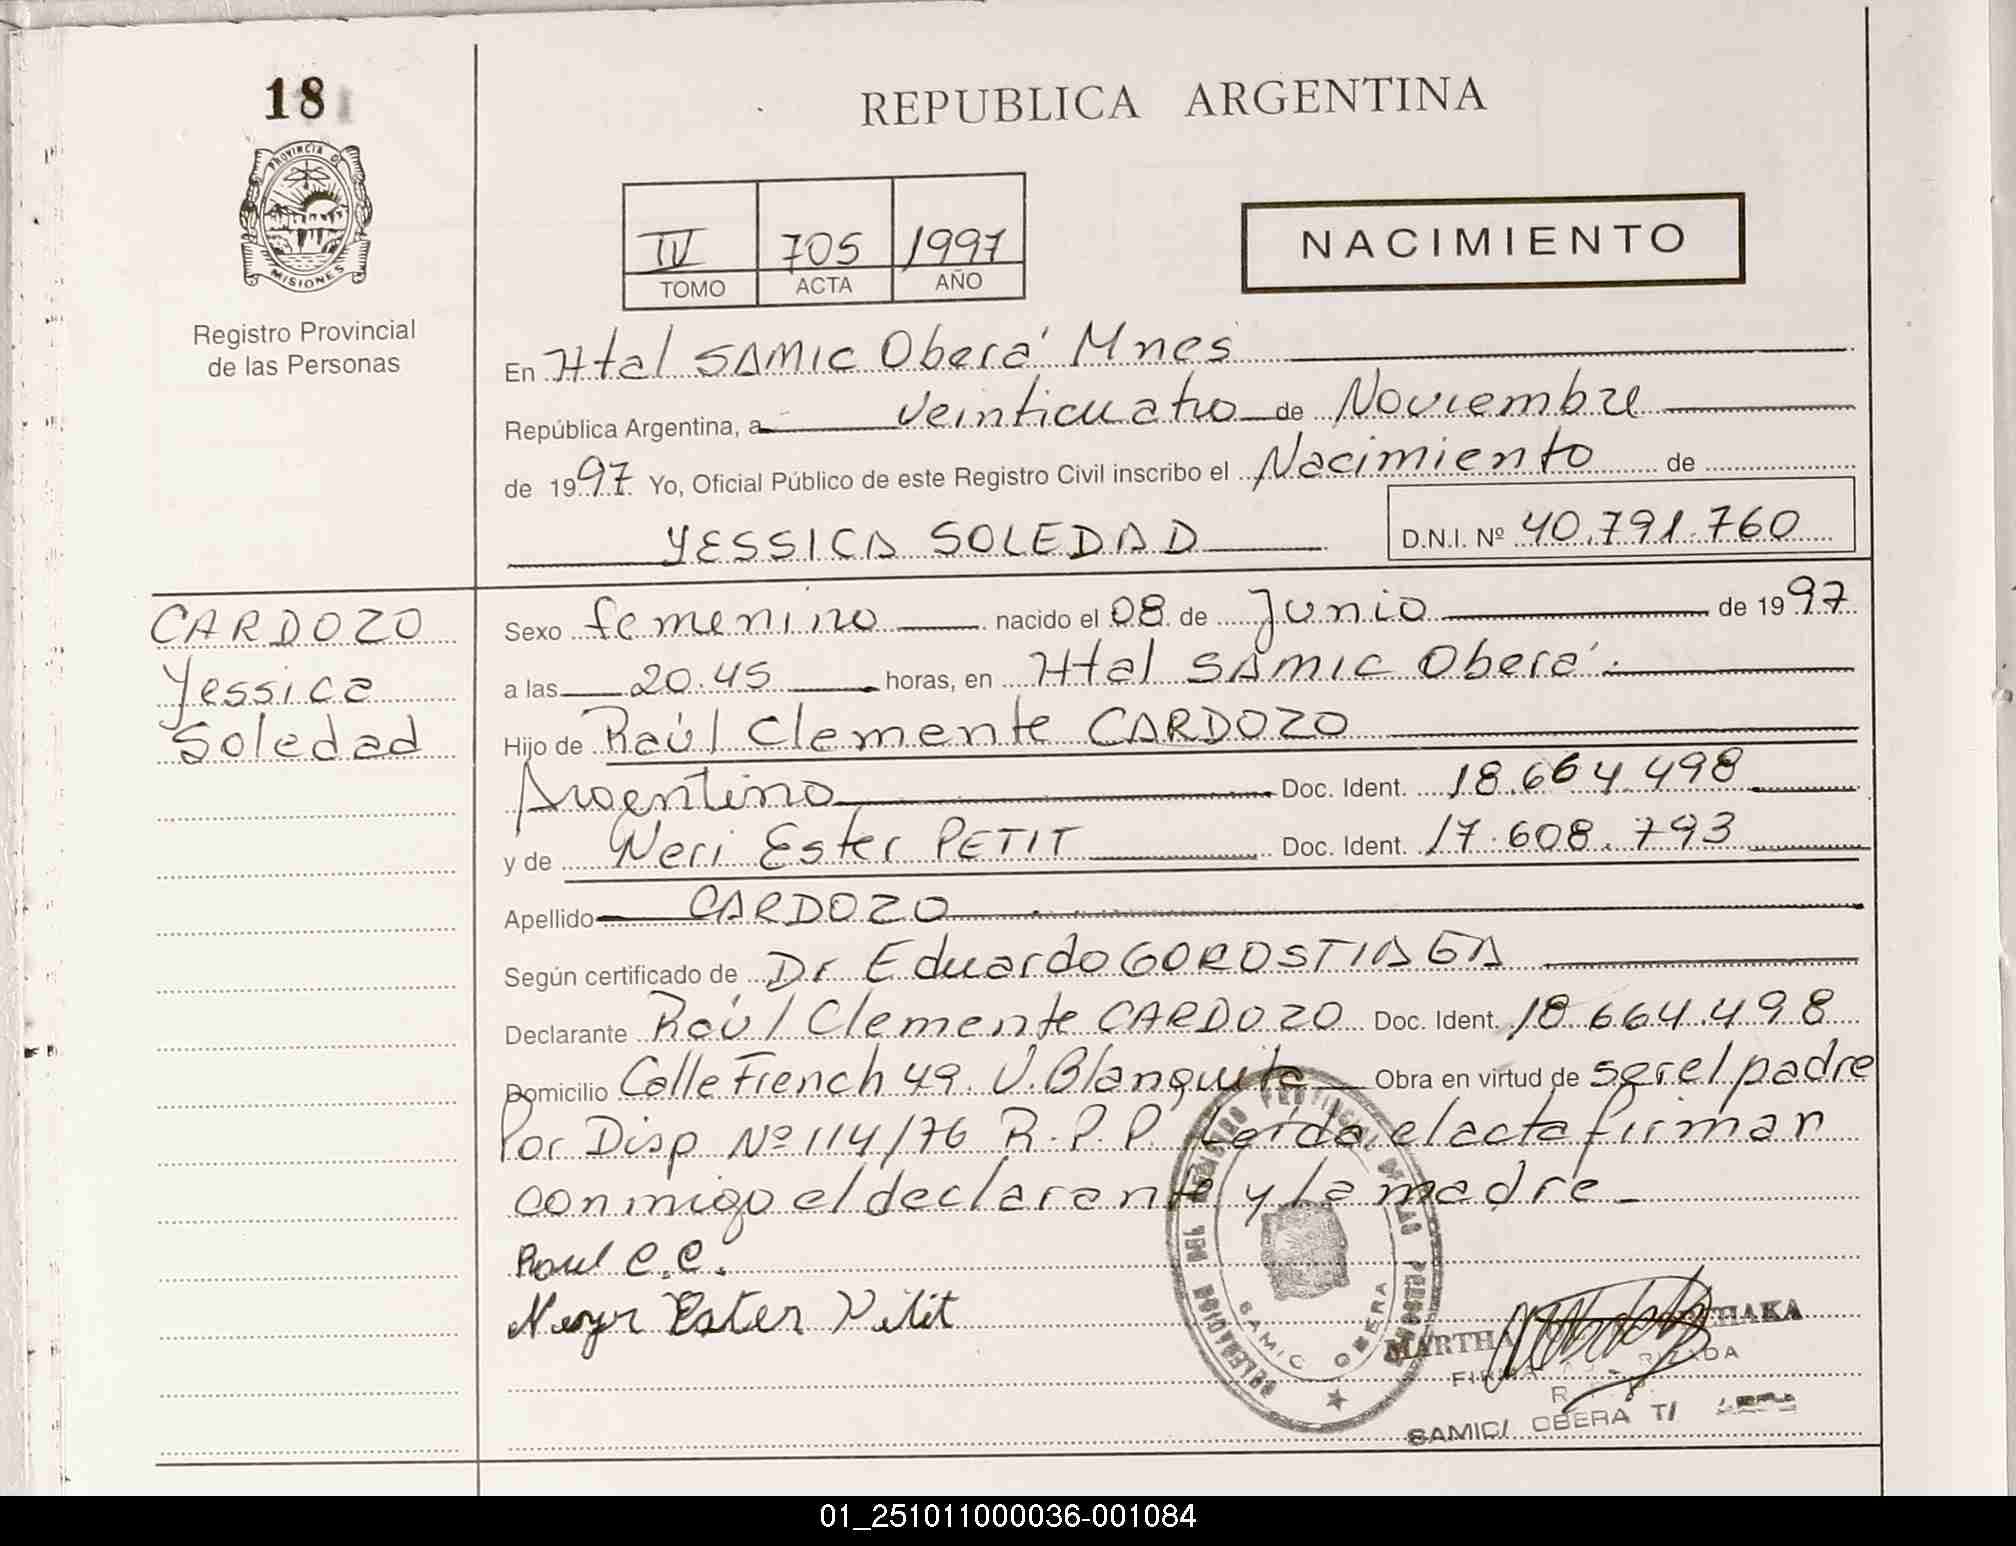 18
PROVINCIA DE
MISIONES
Registro Provincial
de las Personas
REPUBLICA ARGENTINA
IV 705 1997
TOMO ACTA AÑO
NACIMIENTO
En Htal SAMIC Oberá Mnes
República Argentina, a veinticuatro de Noviembre
de 1997 Yo, Oficial Público de este Registro Civil inscribo el Nacimiento de
YESSICA SOLEDAD D.N.I. Nº 40.791.760
CARDOZO
Yessica
Soledad
Sexo femenino nacido el 08 de Junio de 1997
a las 20.45 horas, en Htal SAMIC Oberá.
Hijo de Raúl Clemente CARDOZO
Argentino Doc. Ident. 18.664.498
y de Neri Ester PETIT Doc. Ident. 17.608.793
Apellido CARDOZO
Según certificado de Dr Eduardo GOROSTIAGA
Declarante Raúl Clemente CARDOZO Doc. Ident. 18.664.498
Domicilio Calle French 49. V. Blanquita Obra en virtud de ser el padre
Por Disp Nº 114/76 R.P.P. Leída el acta firman
conmigo el declarante y la madre_
Raul C.C.
Ester Petit
DELEGACION DEL REGISTRO PROVINCIAL DE LAS PERSONAS
SAMIC OBERA
MARTHA
SAMIC/ OBERA T/
01_251011000036-001084